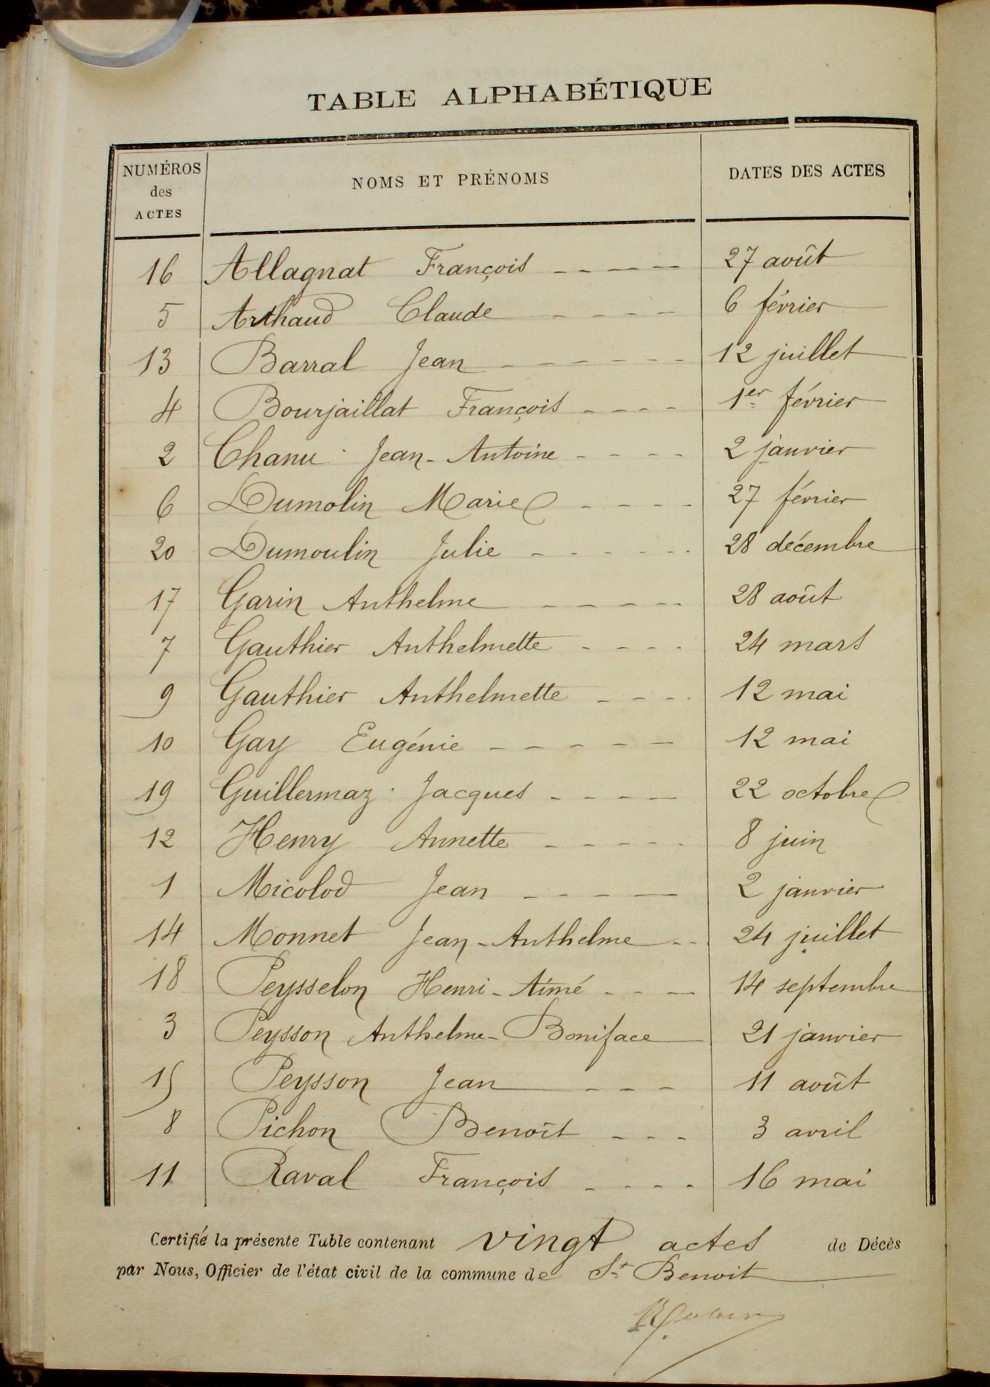 TABLE ALPHABÉTIQUE
NUMÉROS des ACTES NOMS ET PRÉNOMS DATES DES ACTES
16 Allagnat François 27 août
5 Arthaud Claude 6 février
13 Barral Jean 12 juillet
4 Bourjaillat François 1er février
2 Chanu Jean-Antoine 2 janvier
6 Dumolin Marie 27 février
20 Dumoulin Julie 28 décembre
17 Garin Anthelme 28 août
7 Gauthier Anthelmette 24 mars
9 Gauthier Anthelmette 12 mai
10 Gay Eugénie 12 mai
19 Guillermaz Jacques 22 octobre
12 Henry Annette 8 juin
1 Micolod Jean 2 janvier
14 Monnet Jean-Anthelme 24 juillet
18 Peysselon Henri-Aimé 14 septembre
3 Peysson Anthelme-Boniface 21 janvier
15 Peysson Jean 11 août
8 Pichon Benoît 3 avril
11 Raval François 16 mai
Certifié la présente Table contenant vingt actes de Décès
par Nous, Officier de l'état civil de la commune de St Benoit